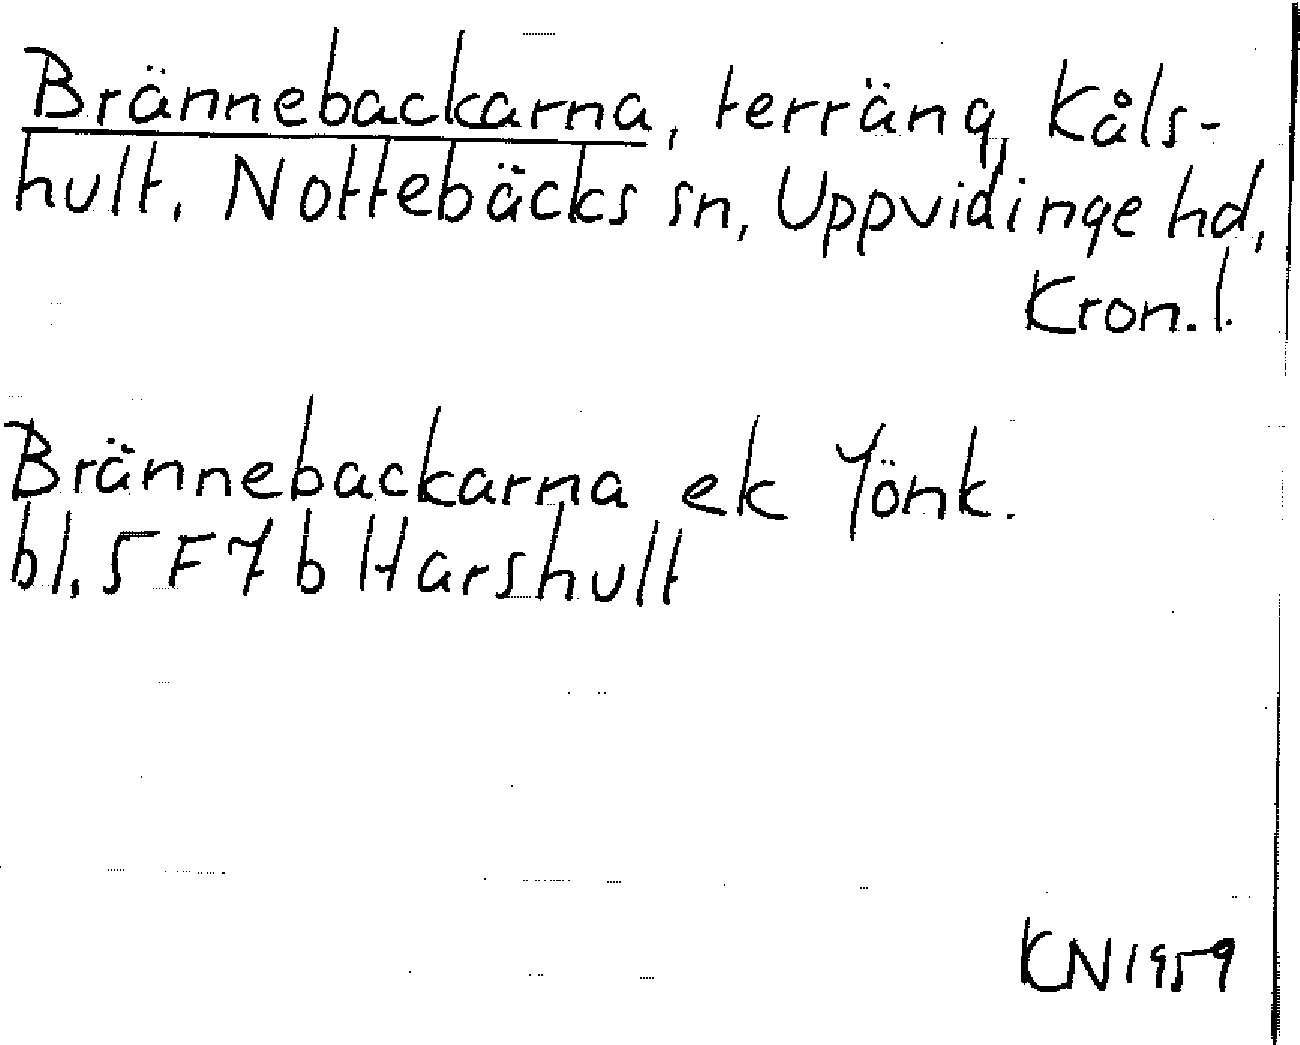 Brännebackarna, terräng, Kåls-
hult, Nottebäcks sn, Uppvidinge hd,
Kron. l.
Brännebackarna ek Jönk.
bl. 5 F 7 b Harshult
KN 1959